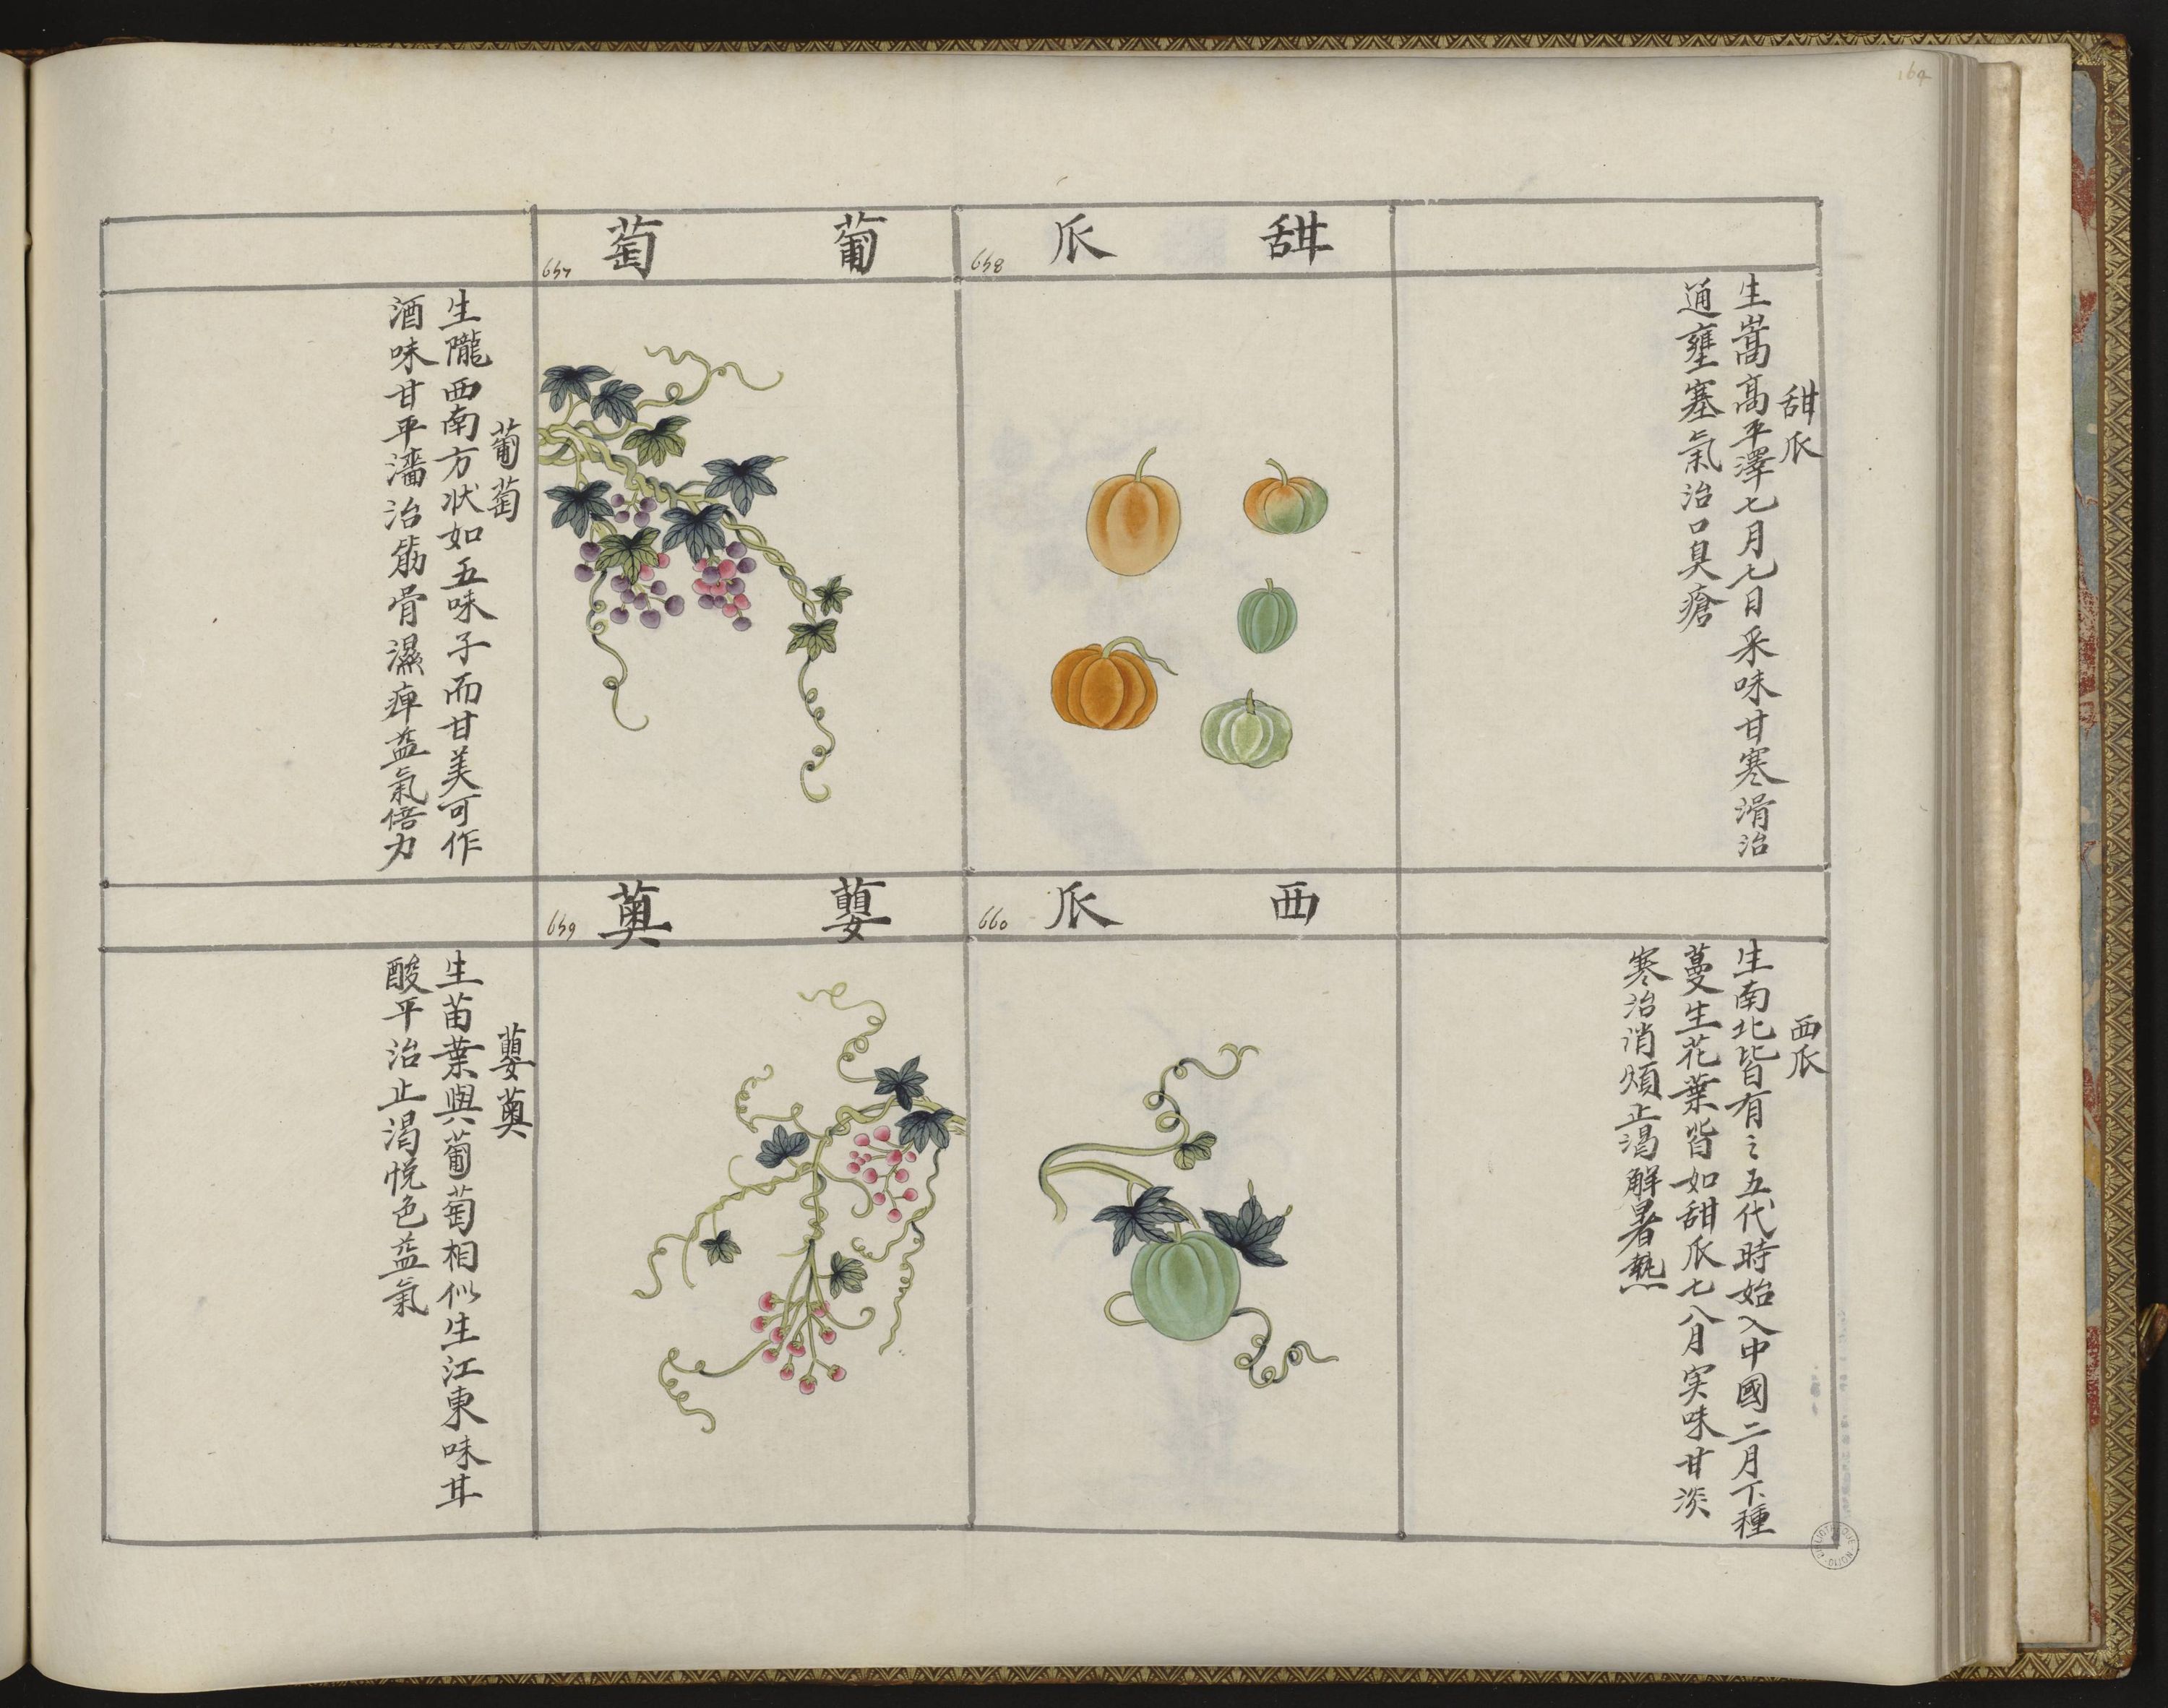 164
甜瓜
658
甜瓜
生嵩高平澤七月七日采味甘寒滑治
通壅塞氣治口臭瘡
葡萄
657
葡萄
生隴西南方状如五味子而甘美可作
酒味甘平濇治筋骨濕痺益氣倍力
西瓜
660
西瓜
生南北皆有之五代時始入中國二月下種
蔓生花葉皆如甜瓜七八月实味甘淡
寒治消煩止渴解暑熱
蘡薁
659
蘡薁
生苗葉與葡萄相似生江東味甘
酸平治止渴悦色益氣